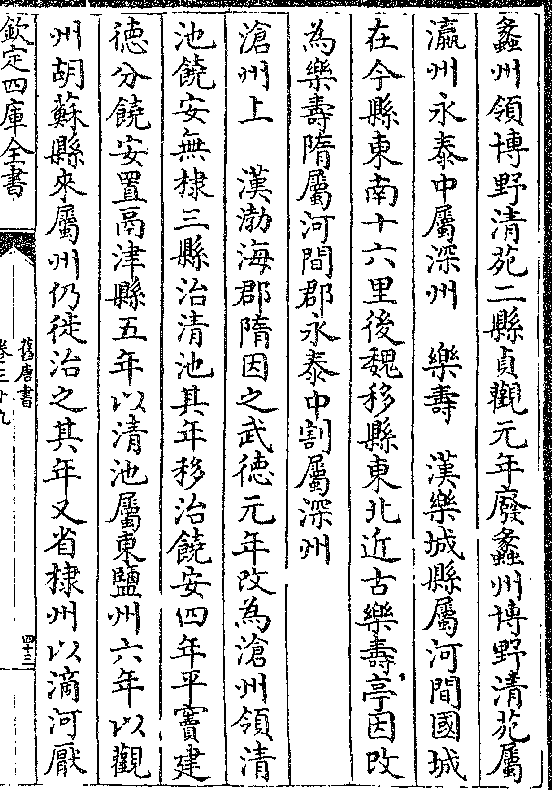 蠡州領博野清苑二縣貞觀元年廢蠡州博野清苑屬
瀛州永泰中屬深州　樂壽　漢樂城縣屬河間國城
在今縣東南十六里後魏移縣東北近古樂壽亭因改
為樂壽隋屬河間郡永泰中割屬深州
滄州上　漢渤海郡隋因之武德元年改為滄州領清
池饒安無棣三縣治清池其年移治饒安四年平竇建
德分饒安置鬲津縣五年以清池屬東鹽州六年以觀
州胡蘇縣來屬州仍徙治之其年又省棣州以滴河厭
欽定四庫全書
舊唐書
卷三十九
四十三